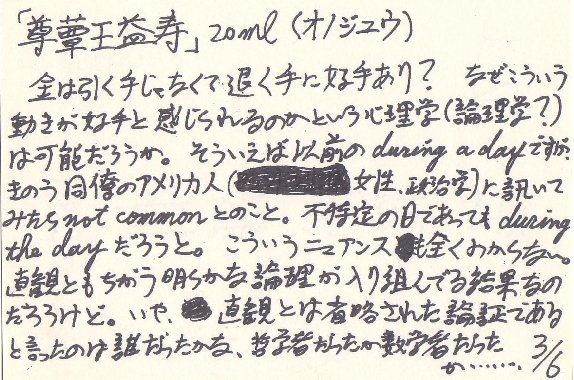 「尊蕈王益寿」20ml (オノジュウ)
金は引く手じゃなくて退く手に好手あり? なぜこういう
動きが好手と感じられるのかという心理学(論理学?)
は可能だろうか。そういえば以前のduring a dayですが、
きのう同僚のアメリカ人(女性、政治学)に訊いて
みたらnot commonとのこと。不特定の日であってもduring
the dayだろうと。こういうニュアンスは全くわからない。
直観ともちがう明らかな論理が入り組んでる結果なの
だろうけど。いや、直観とは省略された論証である
と言ったのは誰だったかな、哲学者だったか数学者だった
か……
3/6